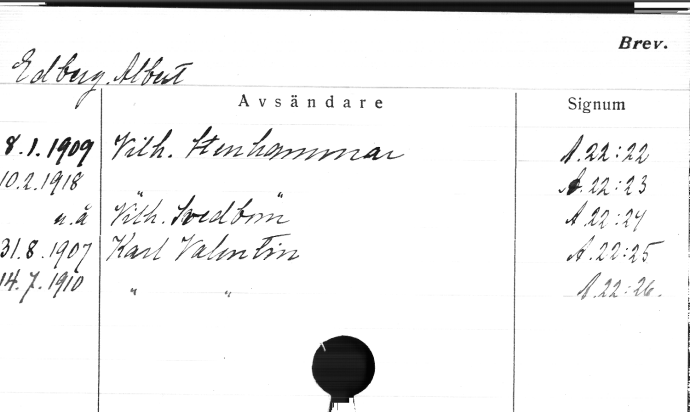 Brev.
Edberg, Albert
Avsändare Signum
8.1.1909 Vilh. Stenhammar A.22:22
10.2.1918 " " A.22:23
u.å Vilh. Svedbom A 22:24
31.8.1907 Karl Valentin A.22:25
14.7.1910 " " A.22:26.